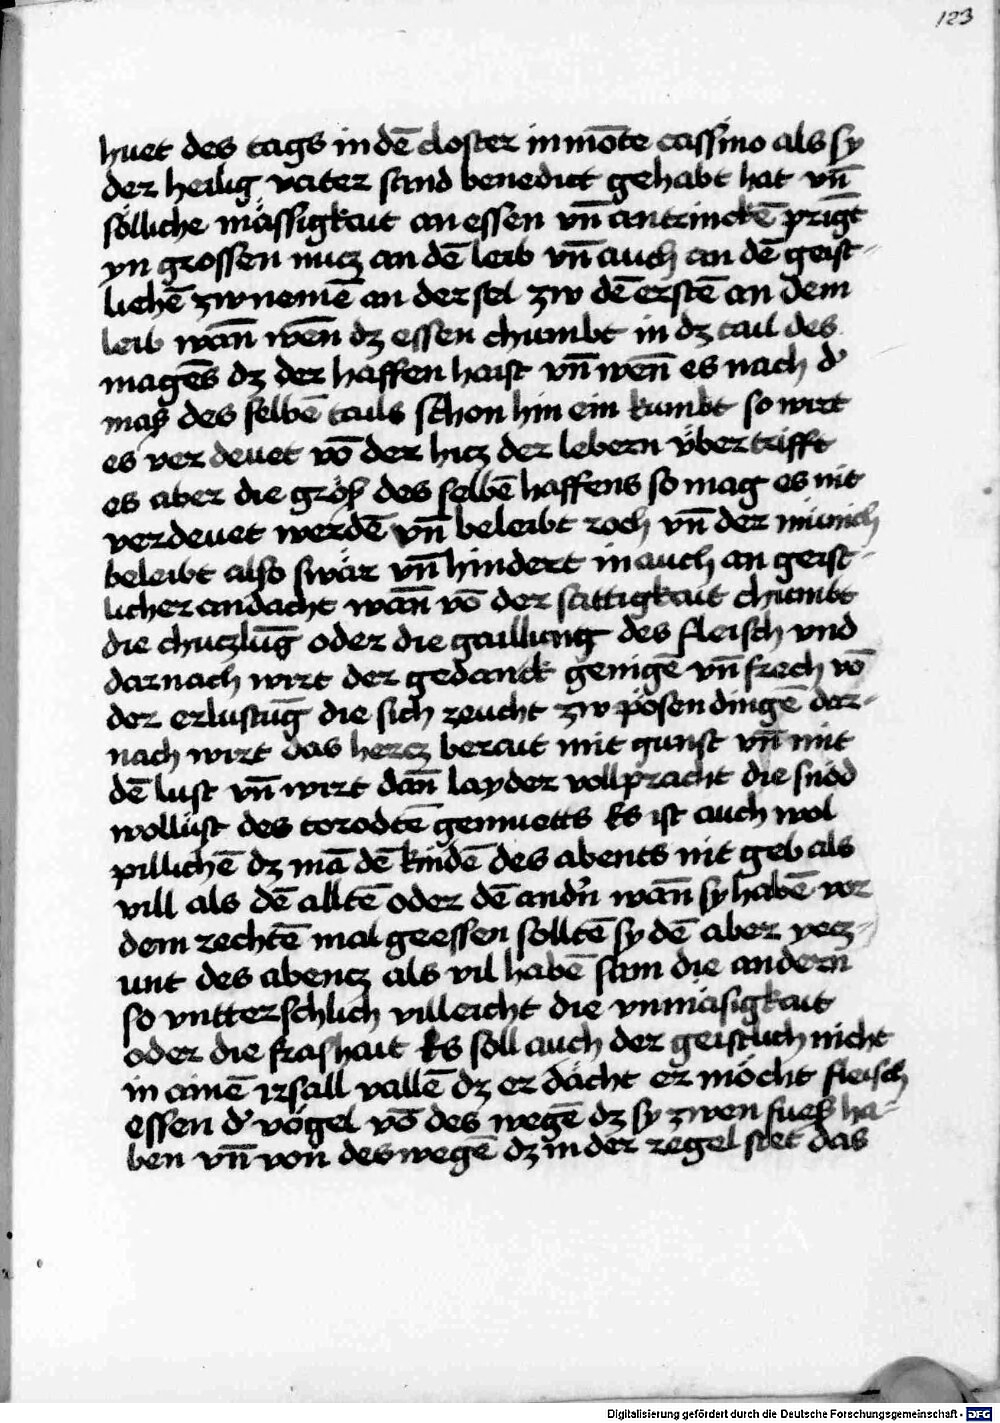 123
huet des tags in dē closter in mōte cassino als sy
der heilig vater sand benedict gehabt hat vn̄
sölliche mässigkait an essen vn̄ an trinckē prīgt
yn grossen nucz an dē leib vn̄ auch an dē geist-
lichē zw nemē an der sel zw dē erstē an dem
leib wan̄ wen̄ dz essen chumbt in dz tail des
magēs dz der haffen haist vn̄ wen̄ es nach d'
maß des selbē tails schon hin ein kumbt so wirt
es ver deuet vō der hicz der lebern v̈ber trifft
es aber die gröss des selbē haffens so mag es nit
verdeuet werdē vn̄ beleibt roch vn̄ der münich
beleibt also swär vn̄ hindert in auch an geist-
licher andacht wan̄ vō der sattigkait chumbt
die chuczlūg oder die gaillung des fleisch vnd
darnach wirt der gedanck genigē vn̄ frech vō
der erlustūg die sich zeucht zw pösen dingē dar-
nach wirt das hercz berait mit gunst vn̄ mit
dē lust vn̄ wirt dan̄ layder vollpracht die snöd
wollüst des torodtē gemuetts Es ist auch wol
pillichē dz mā dē kindē des abents nit geb als
vill als dē alltē oder dē andn̄ wan̄ sy habē vor
dem rechtē mal geessen solltē sy dē aber yecz-
unt des abencz als vil habē sam die andern
so vntterschlich villeicht die vnmäsigkait
oder die frashait Es soll auch der geistlich nicht
in ainē irsall vallē dz er dächt er möcht fleisch
essen d' vögel vō des wegē dz sy zwen fueß ha-
ben vn̄ von des wegē dz in der regel stet das
Digitalisierung gefördert durch die Deutsche Forschungsgemeinschaft - DFG